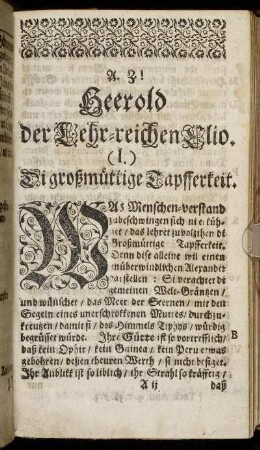 A. Z!
Heerold
der Lehr-reichen Clio.
(I.)
Di großmüttige Tapfferkeit.
WAs Menschen-verstand
zubeschwingen sich ni erküh-
net / das lehret zuvolzihen di
Großmüttige Tapfferkeit.
Denn dise alleine wil einen
unüberwindlichen Alexander
darstellen: Si verachtet di
gemeinen Welt-Gräntzen /
und wünschet / das Meer der Seernen / mit den
Segeln eines unerschrokkenen Muttes / durchzu-
kreutzen / damit si / des Himmels Tiphys / würdig
begrüsset würde. Ihre Gütte ist so vortrefflich /
B
daß kein Ophir / kein Guinea / kein Peru etwas
gebohren / dessen theuren Werth / si nicht besiget.
Ihr Anblikk ist so liblich / ihr Strahl so kräfftig /
A ij
daß